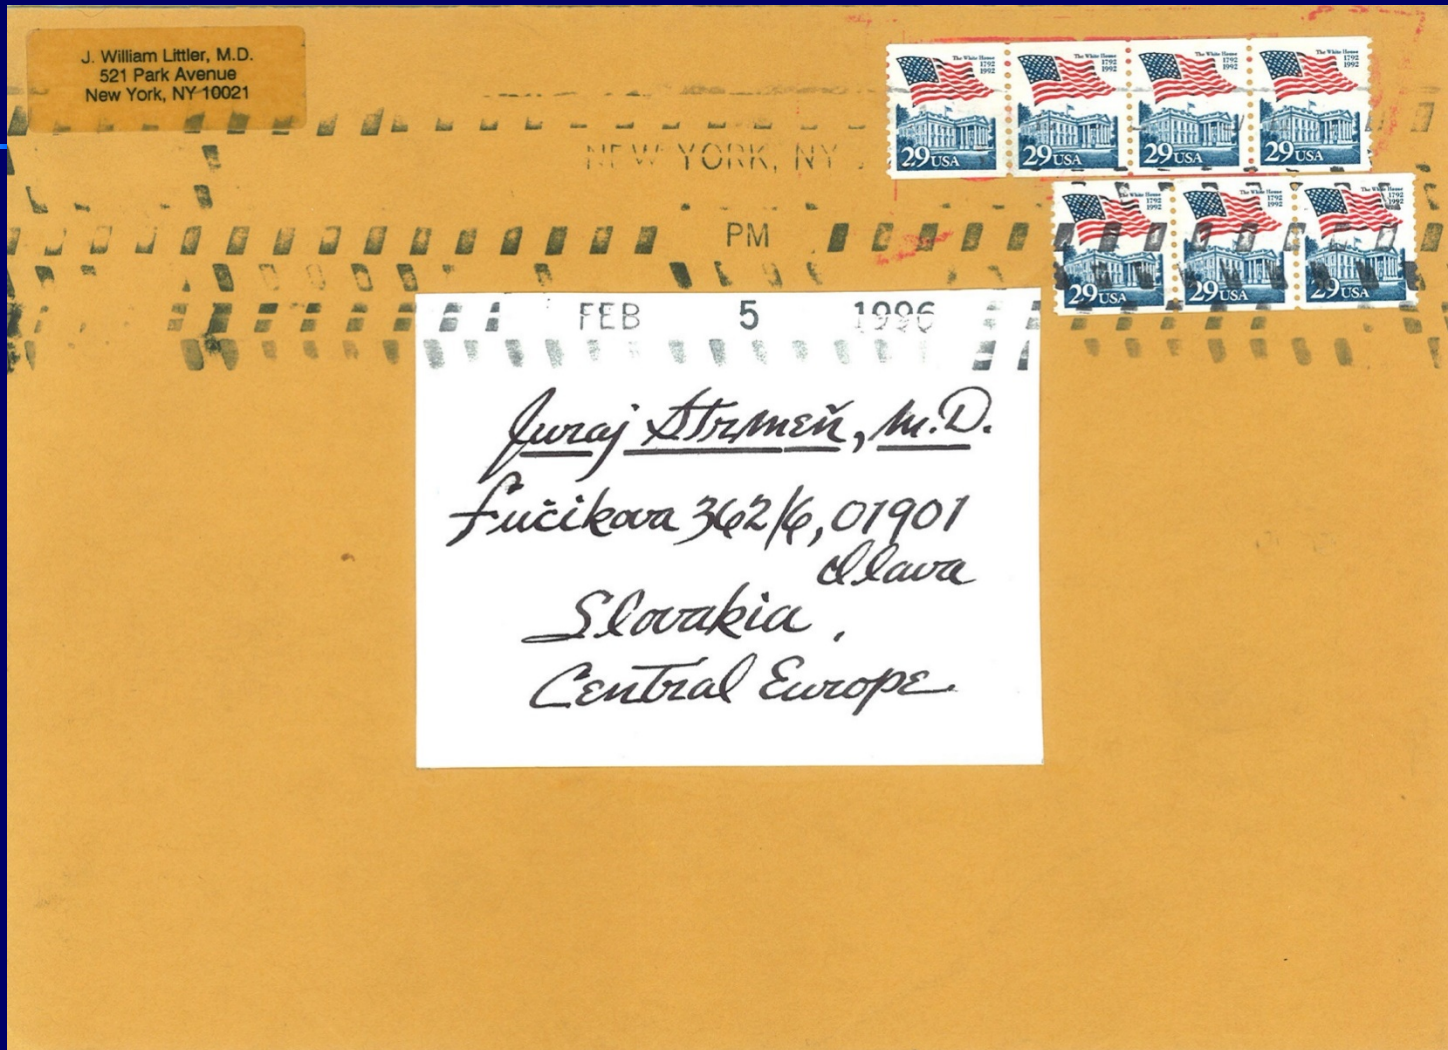 J. William Littler, M.D.
521 Park Avenue
New York, NY 10021
The White House
1792
1992
29 USA
The White House
1792
1992
29 USA
The White House
1792
1992
29 USA
The White House
1792
1992
29 USA
NEW YORK, NY
The White House
1792
1992
29 USA
The White House
1792
1992
29 USA
The White House
1792
1992
29 USA
PM
FEB 5 1996
Juraj Strmeň, M.D.
Fučikova 362/6, 01901
Ilava
Slovakia,
Central Europe